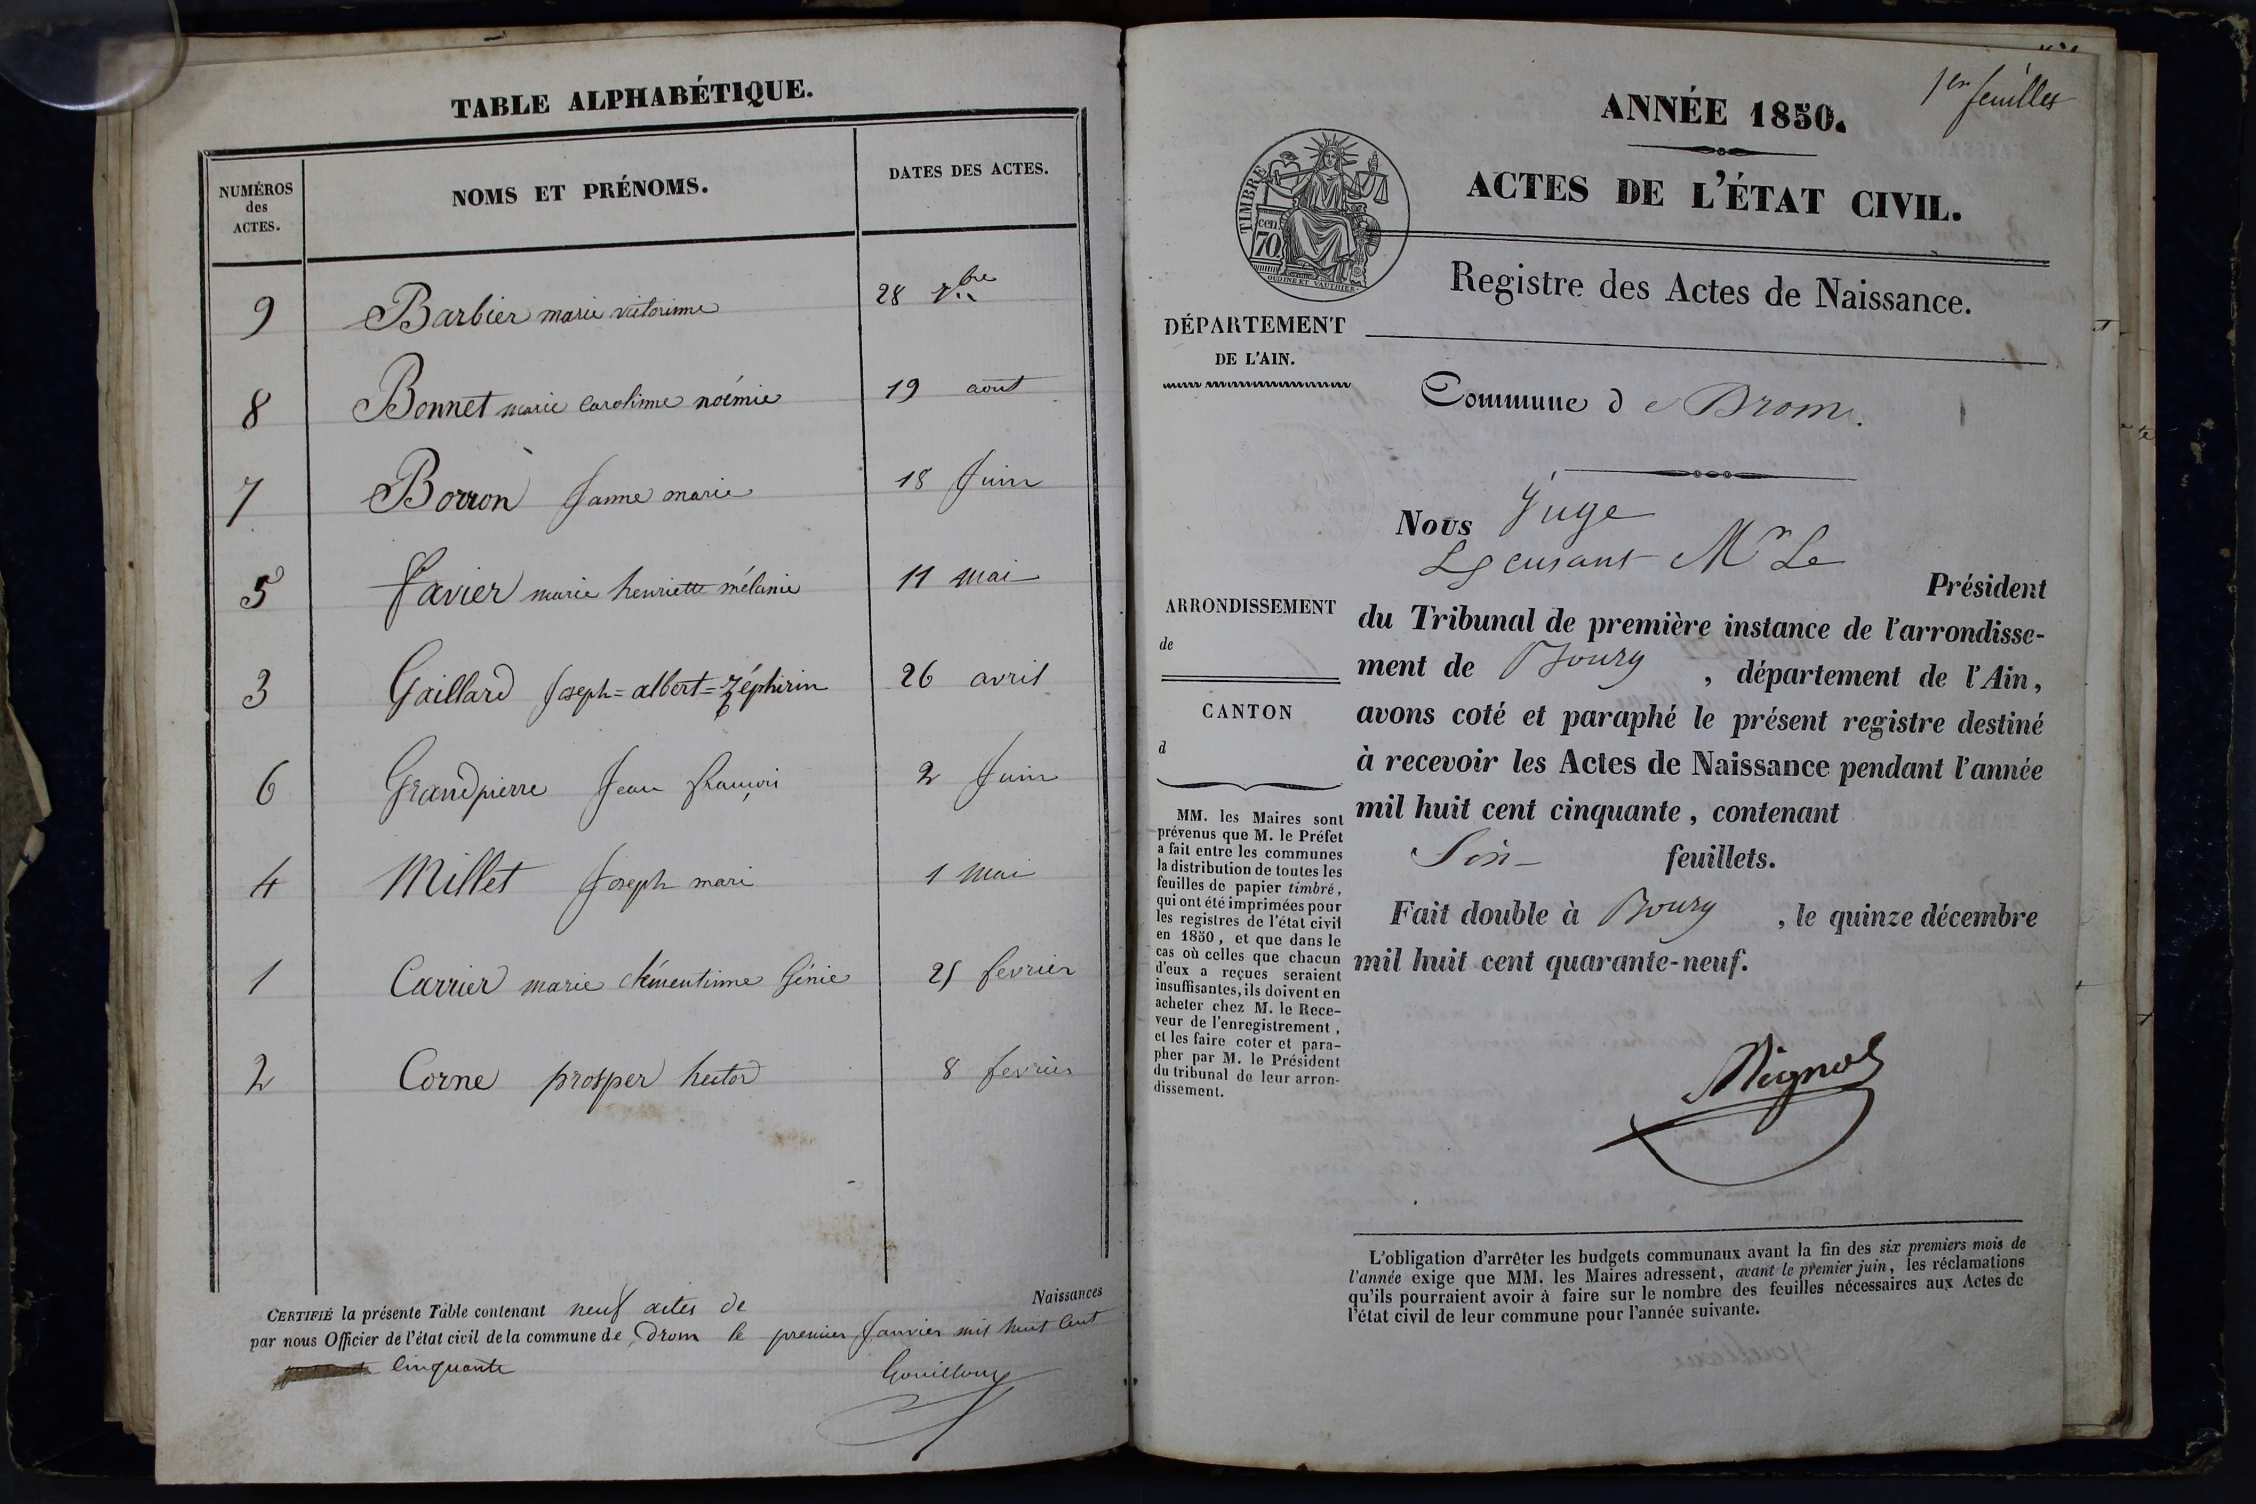 TABLE ALPHABÉTIQUE.
NUMÉROS des ACTES.
NOMS ET PRÉNOMS.
DATES DES ACTES.
9 Barbier marie victorinne 28 7bre
8 Bonnet marie Carolinne noémie 19 aout
7 Borron Janne marie 18 Juin
5 Favier marie henriette mélanie 11 mai
3 Gaillard Joseph=albert=Zéphirin 26 avril
6 Grandpierre Jean françois 2 Juin
4 Millet Joseph mari 1 mai
1 Carrier marie clémentinne Génie fevrier
2 Corne prosper hector 8 fevrier
CERTIFIÉ la présente Table contenant neuf actes de Naissances
par nous Officier de l'état civil de la commune de Drom le premier Janvier mil huit Cent
Cinquante
Gouilloux
1er feuillet
ANNÉE 1850.
ACTES DE L'ÉTAT CIVIL.
TIMBRE
cen.
70
OUDINE ET VAUTHIER
Registre des Actes de Naissance.
DÉPARTEMENT
DE L'AIN.
Commune de Drom.
Nous Juge
Mr Le
Président
ARRONDISSEMENT
de
CANTON
d
du Tribunal de première instance de l'arrondisse-
ment de Bourg, département de l'Ain,
avons coté et paraphé le présent registre destiné
à recevoir les Actes de Naissance pendant l'année
mil huit cent cinquante, contenant
Six feuillets.
Fait double à Bourg, le quinze décembre
mil huit cent quarante-neuf.
MM. les Maires sont
prévenus que M. le Préfet
a fait entre les communes
la distribution de toutes les
feuilles de papier timbré,
qui ont été imprimées pour
les registres de l'état civil
en 1850, et que dans le
cas où celles que chacun
d'eux a reçues seraient
insuffisantes, ils doivent en
acheter chez M. le Rece-
veur de l'enregistrement,
et les faire coter et para-
pher par M. le Président
du tribunal de leur arron-
dissement.
L'obligation d'arrêter les budgets communaux avant la fin des six premiers mois de
l'année exige que MM. les Maires adressent, avant le premier juin, les réclamations
qu'ils pourraient avoir à faire sur le nombre des feuilles nécessaires aux Actes de
l'état civil de leur commune pour l'année suivante.